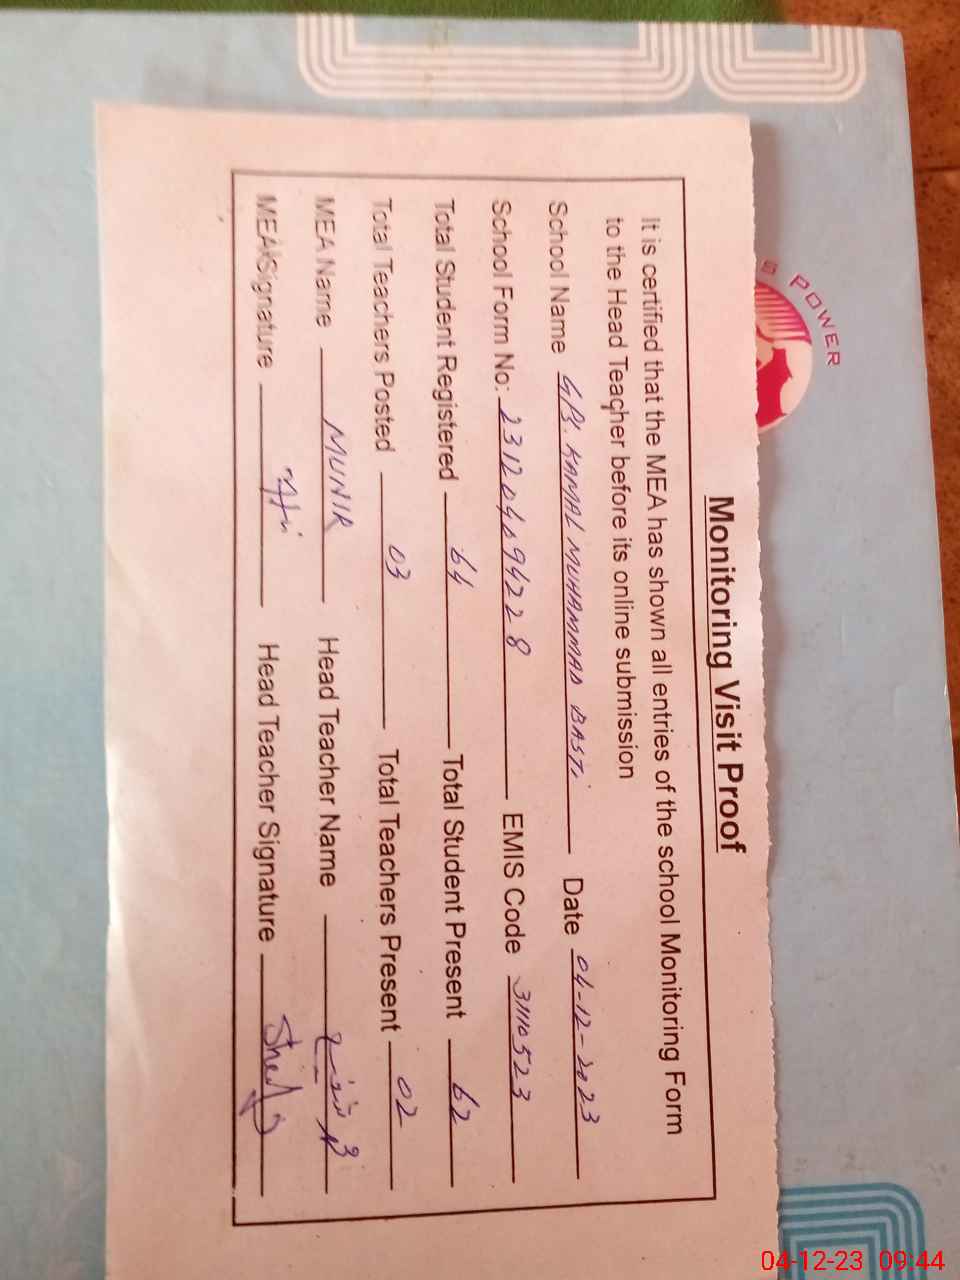 S POWER
Monitoring Visit Proof
It is certified that the MEA has shown all entries of the school Monitoring Form
to the Head Teacher before its online submission
School Name GPS. KAMAL MUHAMMAD BASTI Date 04-12-2023
School Form No: EMIS Code 31110523
Total Student Registered 64 Total Student Present 62
Total Teachers Posted 03 Total Teachers Present 02
MEA Name MUNIR Head Teacher Name
MEA Signature Head Teacher Signature
04-12-23 09:44